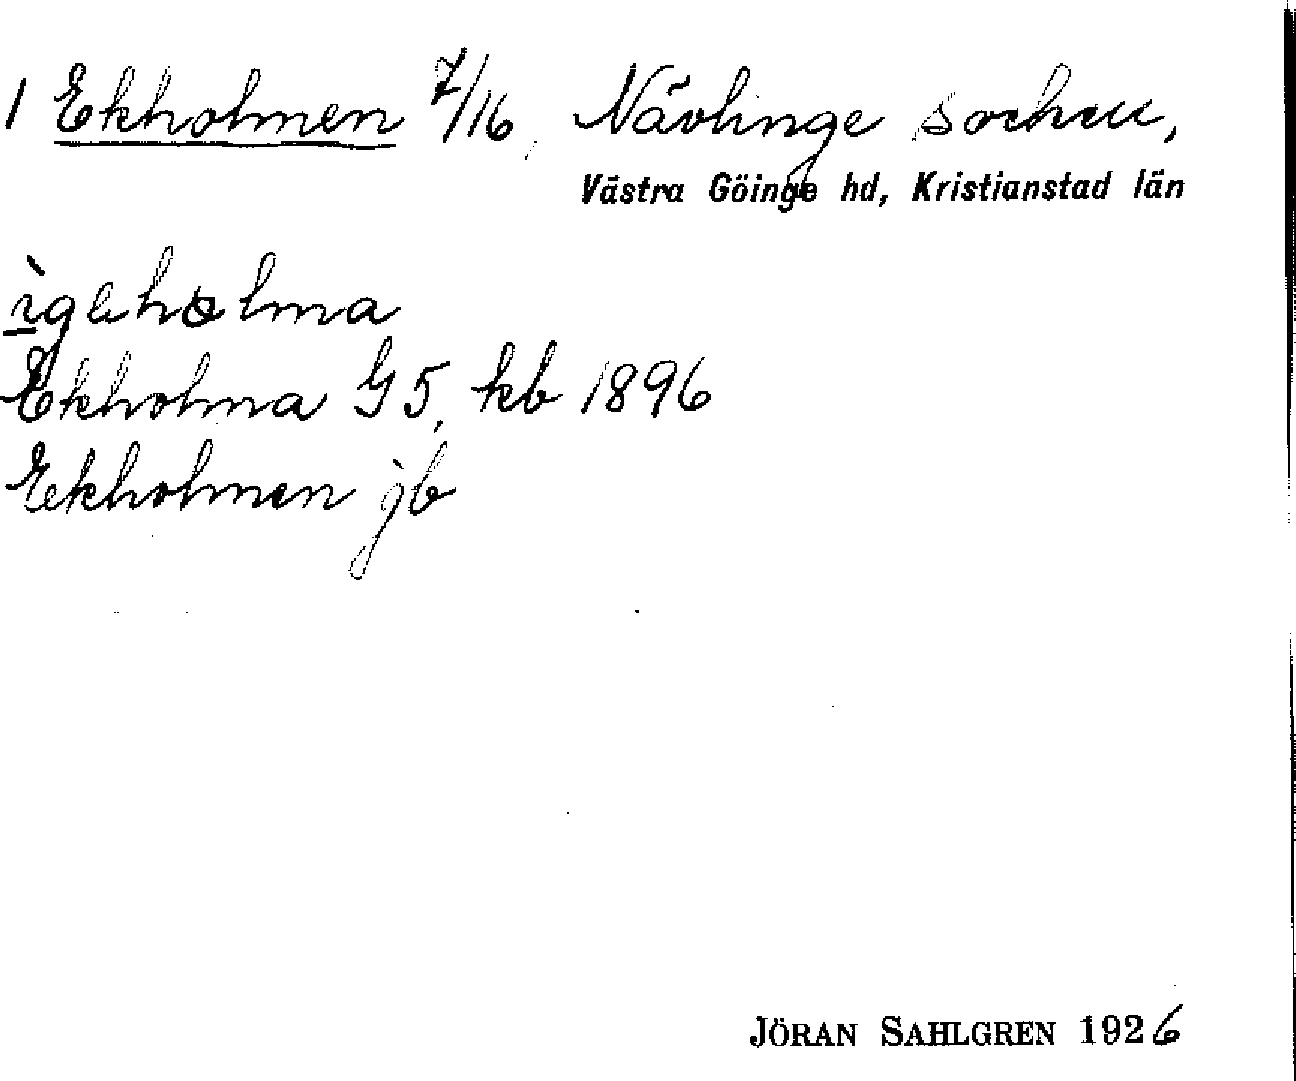 1 Ekholmen 7/16, Nävlinge socken,
Västra Göinge hd, Kristianstad län
Ekholma G 5, kb 1896
Ekholmen jb
JÖRAN SAHLGREN 1926